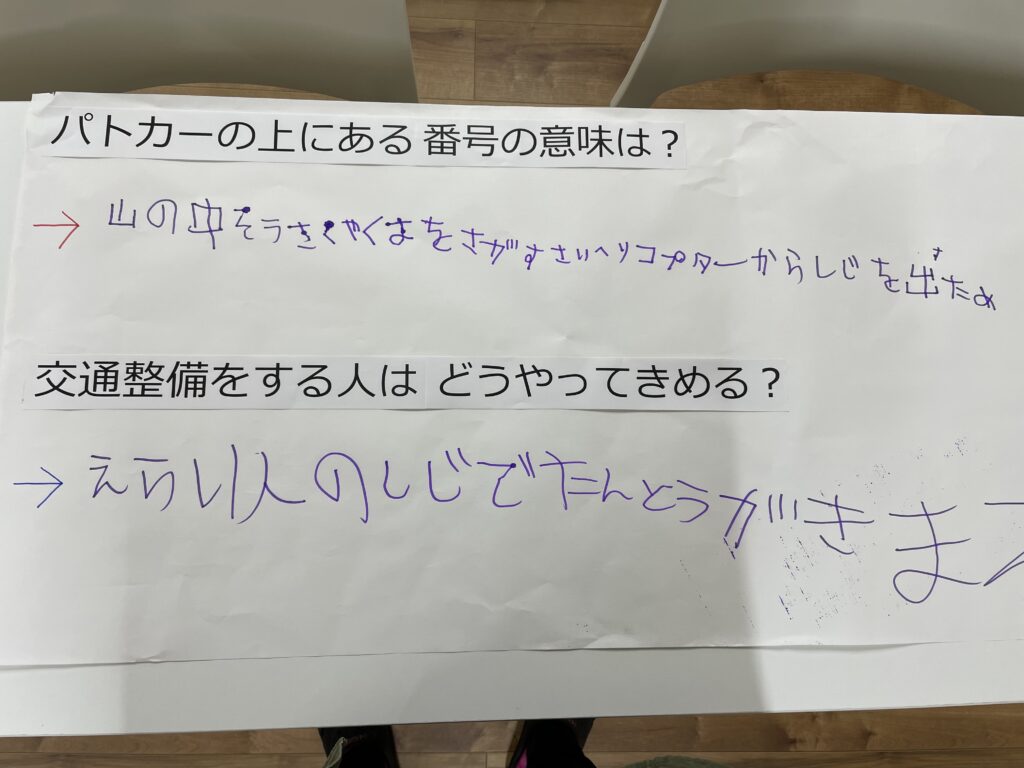 パトカーの上にある 番号の意味は？
→ 山の中そうさくやくまをさがすさいヘリコプターからしじを出すため
交通整備をする人は どうやってきめる？
→ えらい人のしじでたんとうがきま